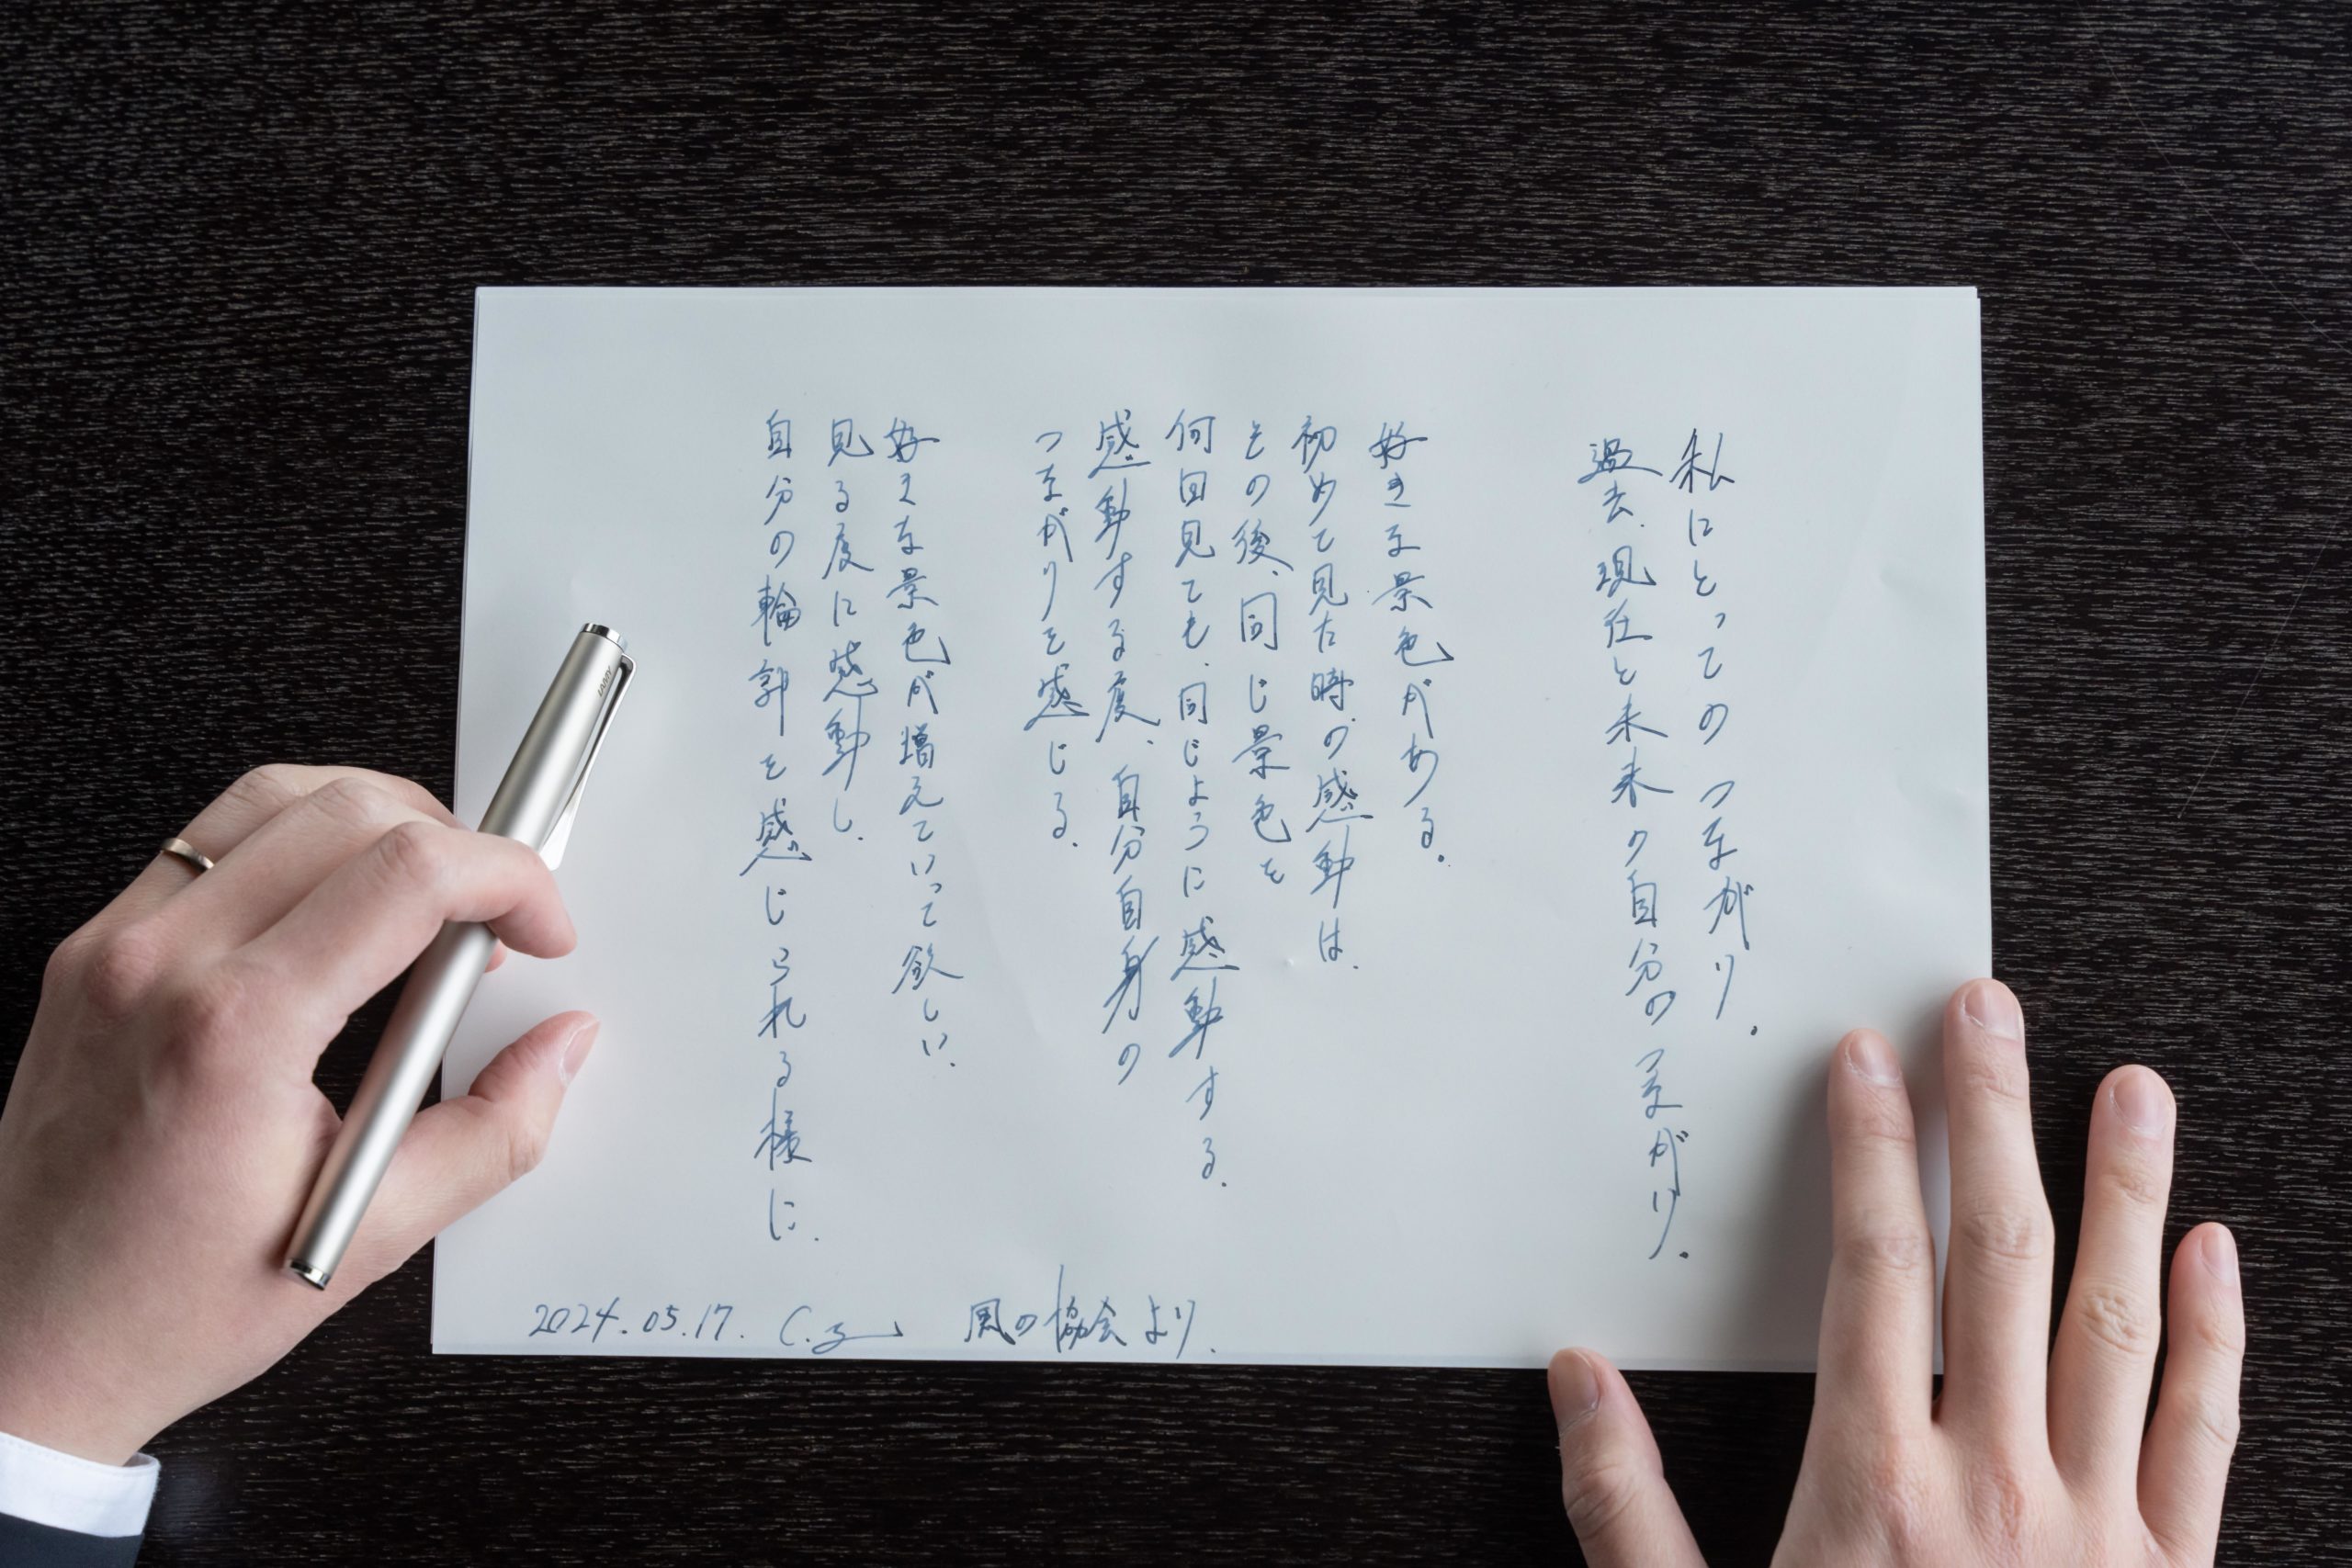 私にとっての つながり。
過去、現在と未来の自分の つながり。
好きな景色がある。
初めて見た時の感動は、
その後、同じ景色を
何回見ても、同じように感動する。
感動する度、自分自身の
つながりを感じる。
好きな景色が増えていって欲しい。
見る度に感動し、
自分の輪郭を感じられる様に。
2024.05.17. 風の協会より.
LAMY